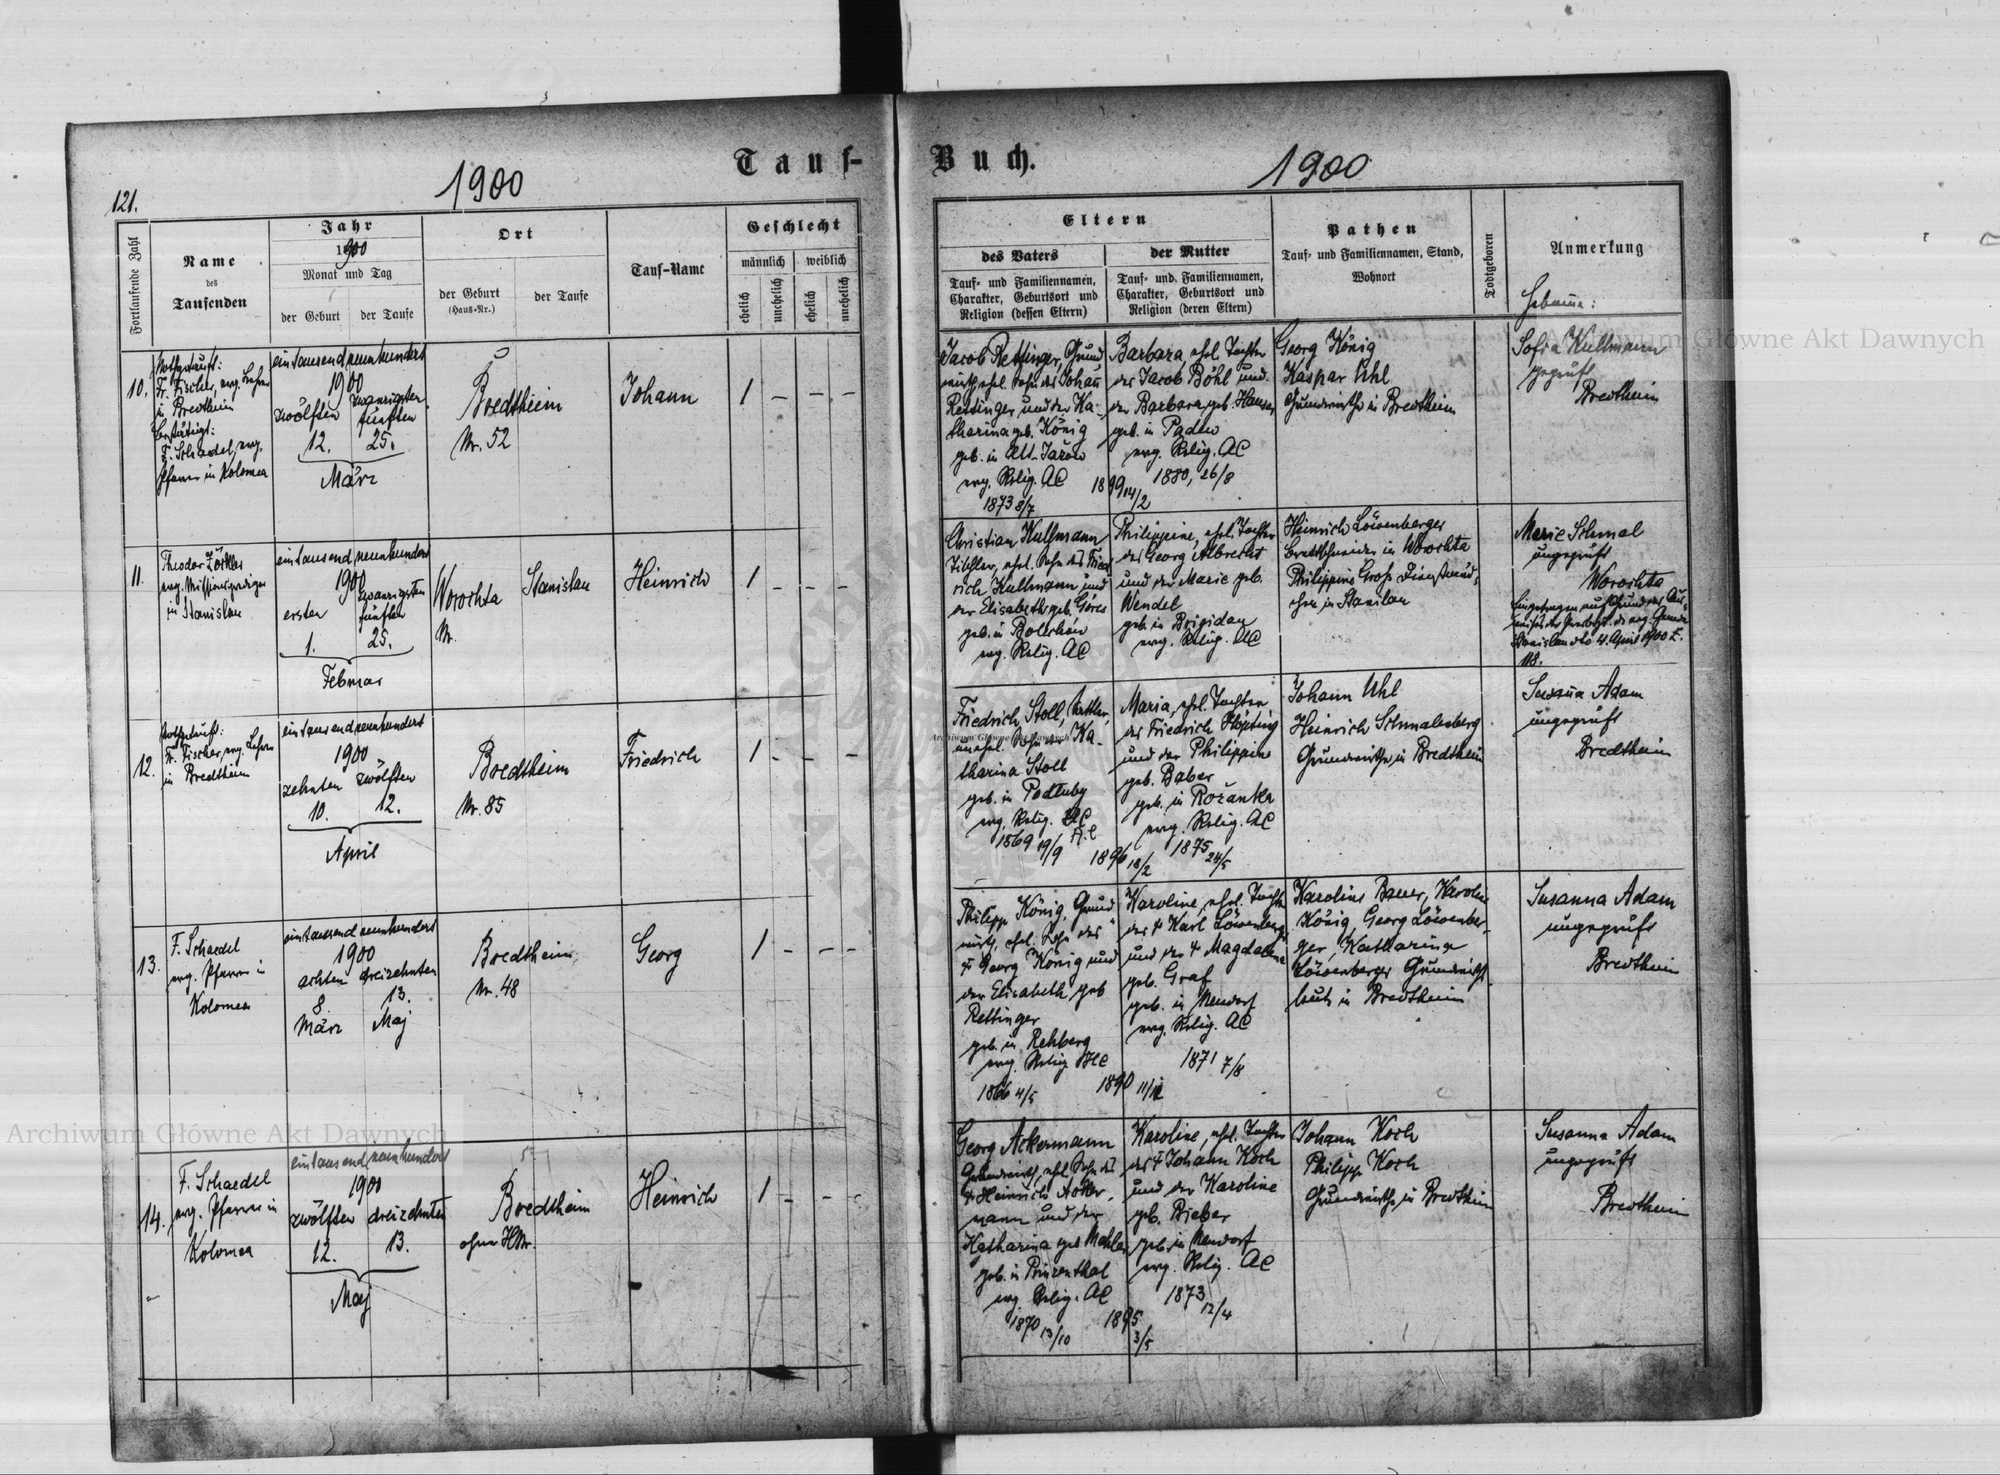 Tauf-
Buch.
121.
1900
1900
Fortlaufende Zahl
Name
des
Taufenden
Jahr
1900
Monat und Tag
der Geburt
der Taufe
Ort
der Geburt
(Haus-Nr.)
der Taufe
Tauf-Name
Geschlecht
männlich
weiblich
ehelich
unehelich
ehelich
unehelich
Eltern
des Vaters
Tauf- und Familiennamen,
Charakter, Geburtsort und
Religion (dessen Eltern)
der Mutter
Tauf- und Familiennamen,
Charakter, Geburtsort und
Religion (deren Eltern)
Pathen
Tauf- und Familiennamen, Stand,
Wohnort
Todtgeboren
Anmerkung
Hebamme:
10.
Nothgetauft:
Fr. Fischer, evg. Lehrer
in Bredtheim
bestätigt:
F. Schaedel, evg.
Pfarrer in Kolomea
eintausend neunhundert
1900
zwölften
zwanzigsten
fünften
12.
25.
März
Bredtheim
Nr. 52
Johann
1 - - -
Jacob Rettinger, Grund
wirth, ehel. Sohn des Johann
Rettinger und der Ka-
tharina geb. König
geb. in Alt-Jažów
evg. Relig. AC
1873 8/7
1899 14/2
Barbara, ehel. Tochter
des Jacob Böhl und
der Barbara geb. Hauser
geb. in Padew
evg. Relig. AC
1880, 26/8
Georg König
Kaspar Uhl
Grundwirthe in Bredtheim
Sofia Kullmann
geprüft
Bredtheim
11.
Theodor Zöckler
evg. Missionsprediger
in Stanislau
eintausend neunhundert
1900
ersten
zwanzigsten
fünften
1.
25.
Februar
Worochta
Nr.
Stanislau
Heinrich
1 - - -
Christian Kullmann
Tischler, ehel. Sohn des Fried
rich Kullmann und
der Elisabeth geb. Göres
geb. in Bolechów
evg. Relig. AC
Philippine, ehel. Tochter
des Georg Albrecht
und der Marie geb.
Wendel
geb. in Brigidau
evg. Relig. AC
Heinrich Löwenberger
Brettschneider in Worochta
Philippine Groß Dienstmäd-
chen in Stanislau
Marie Schmal
ungeprüft
Worochta
Eingetragen auf Grund des Aus-
weises der evg. Gemeinde
Stanislau dto 4. April 1900 Z.
118.
12.
Nothgetauft:
Fr. Fischer, evg. Lehrer
in Bredtheim
eintausend neunhundert
1900
zehnten
zwölften
10.
12.
April
Bredtheim
Nr. 85
Friedrich
1 - - -
Friedrich Stoll, Sattler,
unehel. Sohn der Ka-
tharina Stoll
geb. in Podluby
evg. Relig. AC
1869 19/9
1896 18/2
Maria, ehel. Tochter
des Friedrich
und der Philippine
geb. Baber
geb. in Rožanka
evg. Relig. AC
1875 24/5
Johann Uhl
Heinrich Schmalenberg
Grundwirthe, in Bredtheim
Susanna Adam
ungeprüft
Bredtheim
13.
F. Schaedel
evg. Pfarrer in
Kolomea
eintausend neunhundert
1900
achten
dreizehnten
8.
13.
März
Maj
Bredtheim
Nr. 48
Georg
1 - - -
Philipp König, Grund
wirth, ehel. Sohn des
† Georg König und
der Elisabeth geb
Rettinger
geb. in Rehberg
evg. Relig. HC
1866 4/5
1890 11/12
Karoline, ehel. Tochter
des † Karl Löwenberger
und der † Magdalena
geb. Graf
geb. in Neudorf
evg. Relig. AC
1871 7/8
Karolina Bauer, Karolina
König, Georg Löwenber-
ger, Katharina
Löwenberger Grundwirths
leute in Bredtheim
Susanna Adam
ungeprüft
Bredtheim
14.
F. Schaedel
evg. Pfarrer in
Kolomea
eintausend neunhundert
1900
zwölften
dreizehnten
12.
13.
Maj
Bredtheim
ohne HNr.
Heinrich
1 - - -
Georg Ackermann
Grundwirth, ehel. Sohn des
† Heinrich Acker-
mann und der
Katharina geb Mohler
geb. in Prinzenthal
evg. Relig. AC
1870 13/10
1895 3/5
Karoline, ehel. Tochter
des † Johann Koch
und der Karoline
geb. Bieber
geb. in Neudorf
evg. Relig. AC
1873 12/4
Johann Koch
Philipp Koch
Grundwirthe, in Bredtheim
Susanna Adam
ungeprüft
Bredtheim
Archiwum Główne Akt Dawnych
Archiwum Główne Akt Dawnych
Archiwum Główne Akt Dawnych